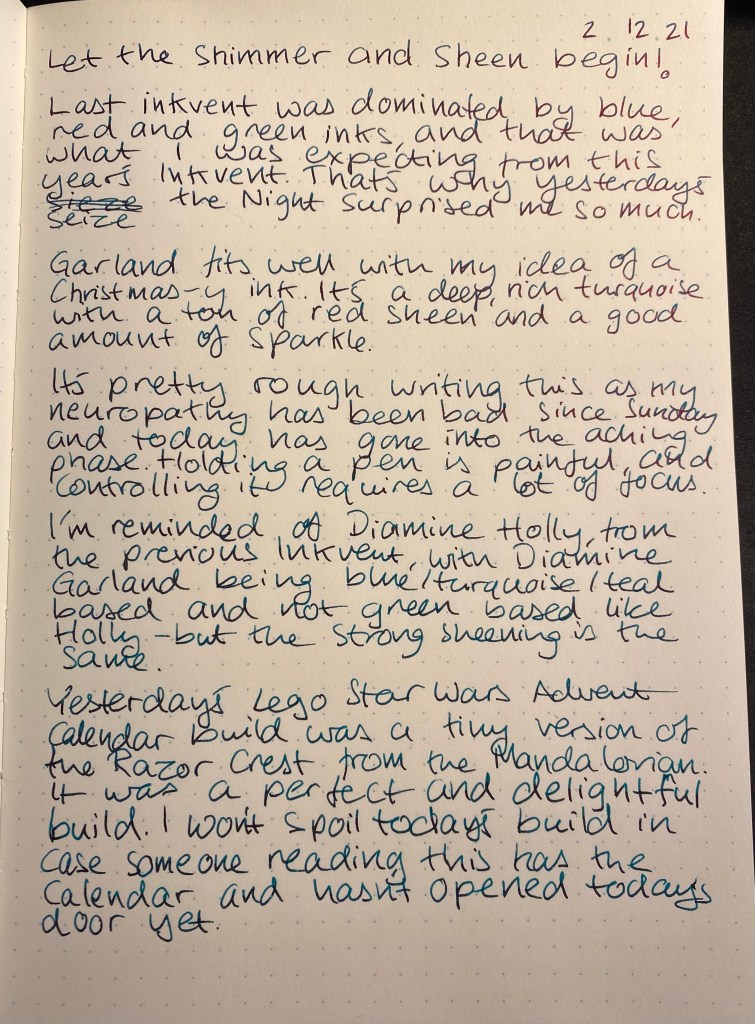 2 12 21
Let the Shimmer and Sheen begin!
Last inkvent was dominated by blue,
red and green inks, and that was
what I was expecting from this
year's Inkvent. That's why yesterday's
Seize the Night surprised me so much.
Garland fits well with my idea of a
Christmas-y ink. It's a deep, rich turquoise
with a ton of red sheen and a good
amount of sparkle.
It's pretty rough writing this as my
neuropathy has been bad since Sunday
and today has gone into the aching
phase. Holding a pen is painful, and
controlling it requires a lot of focus.
I'm reminded of Diamine Holly, from
the previous Inkvent, with Diamine
Garland being blue/turquoise/teal
based and not green based like
Holly - but the strong sheening is the
same.
Yesterday's Lego Star Wars Advent
Calendar build was a tiny version of
the Razor Crest from the Mandalorian.
It was a perfect and delightful
build. I won't spoil today's build in
case someone reading this has the
Calendar and hasn't opened todays
door yet.